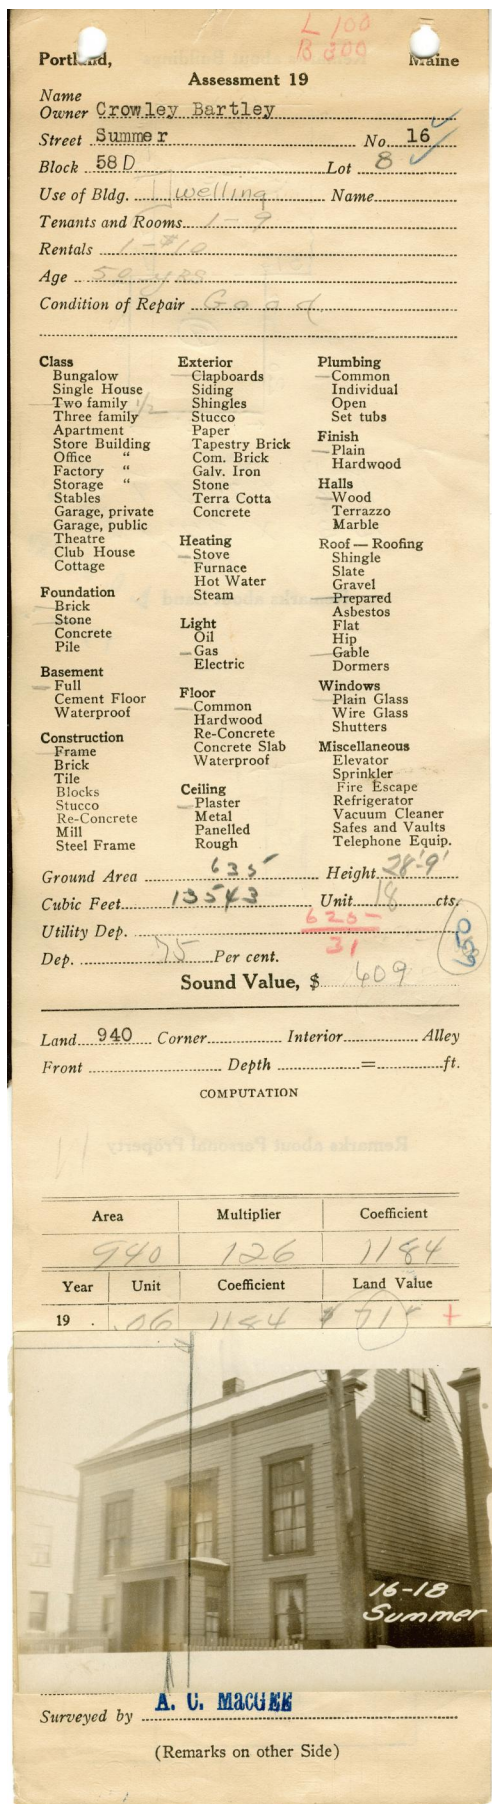 L 100
B 300
Portland, Maine
Assessment 19
Name
Owner Crowley Bartley
Street Summer No. 16
Block 58 D Lot 8
Use of Bldg. Dwelling Name
Tenants and Rooms 1-9
Rentals 1-$10
Age 50 yrs
Condition of Repair Good
Class
Bungalow
Single House
Two family 1/2
Three family
Apartment
Store Building
Office "
Factory "
Storage "
Stables
Garage, private
Garage, public
Theatre
Club House
Cottage
Foundation
Brick
Stone
Concrete
Pile
Basement
Full
Cement Floor
Waterproof
Construction
Frame
Brick
Tile
Blocks
Stucco
Re-Concrete
Mill
Steel Frame
Exterior
Clapboards
Siding
Shingles
Stucco
Paper
Tapestry Brick
Com. Brick
Galv. Iron
Stone
Terra Cotta
Concrete
Heating
Stove
Furnace
Hot Water
Steam
Light
Oil
Gas
Electric
Floor
Common
Hardwood
Re-Concrete
Concrete Slab
Waterproof
Ceiling
Plaster
Metal
Panelled
Rough
Plumbing
Common
Individual
Open
Set tubs
Finish
Plain
Hardwood
Halls
Wood
Terrazzo
Marble
Roof — Roofing
Shingle
Slate
Gravel
Prepared
Asbestos
Flat
Hip
Gable
Dormers
Windows
Plain Glass
Wire Glass
Shutters
Miscellaneous
Elevator
Sprinkler
Fire Escape
Refrigerator
Vacuum Cleaner
Safes and Vaults
Telephone Equip.
Ground Area 635 Height 28'-9'
Cubic Feet 13543 Unit 18 cts.
625-
Utility Dep.
31
650
Dep. 75 Per cent.
Sound Value, $ 609
Land 940 Corner Interior Alley
Front Depth = ft.
COMPUTATION
Area Multiplier Coefficient
940 126 1184
Year Unit Coefficient Land Value
19 .06 1184 $ 71 +
16-18
Summer
Surveyed by A. C. MacGEE
(Remarks on other Side)